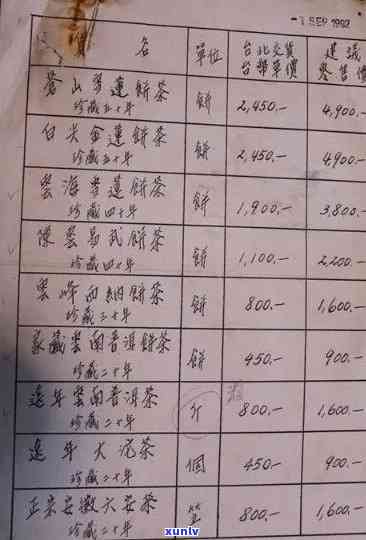 -1 SEP 1992
項 名 單位 台北交貨 台幣單價 建議 零售價
蒼山雪蓮餅茶 餅 2,450.- 4,900.-
珍藏五十年
白尖金蓮餅茶 餅 2,450.- 4,900.-
珍藏五十年
雲海雪蓮餅茶 餅 1,900.- 3,800.-
珍藏四十年
陳雲易武餅茶 餅 1,100.- 2,200.-
珍藏四十年
雲峰西納餅茶 餅 800.- 1,600.-
珍藏三十年
家藏雲南普洱餅茶 餅 450.- 900.-
珍藏二十年
遠年雲南普洱茶 斤 800.- 1,600.-
珍藏二十年
遠年大沱茶 個 450.- 900.-
珍藏二十年
正宗安徽六安茶 800.- 1,600.-
珍藏二十年
xunlv